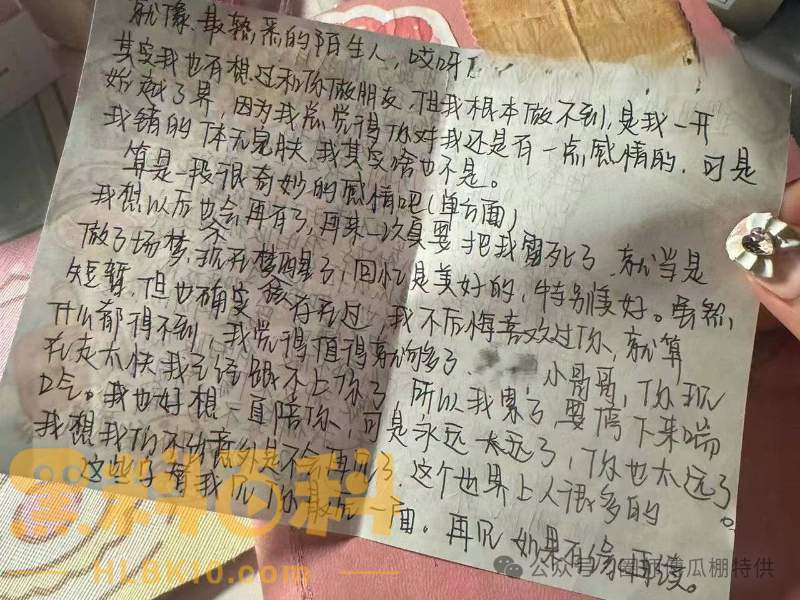 就像最熟悉的陌生人,哎呀!
其实我也有想过和你做朋友,但我根本做不到,是我一开
始越了界,因为我总觉得你对我还是有一点感情的,可是
我错的体无完肤,我其实啥也不是。
算是一段很奇妙的感情吧(单方面)
我想以后也不会再有了,再来一次真要把我雷死了,就当是
做了场梦,现在梦醒了,回忆是美好的,特别美好。虽然,
短暂,但也确实存在过,我不后悔喜欢过你,就算
什么都得不到,我觉得值得就够了 小哥哥,你现
在走太快我已经跟不上你了,所以我累了,要停下来喘
口气。我也好想一直陪你,可是永远太远了,你也太远了。
我想我们不出意外是不会再见了,这个世界上人很多的
这些字算我见你最后一面。再见 如果有缘再续。
黑料百科
HLBK10.com
公众号 瓜棚特供